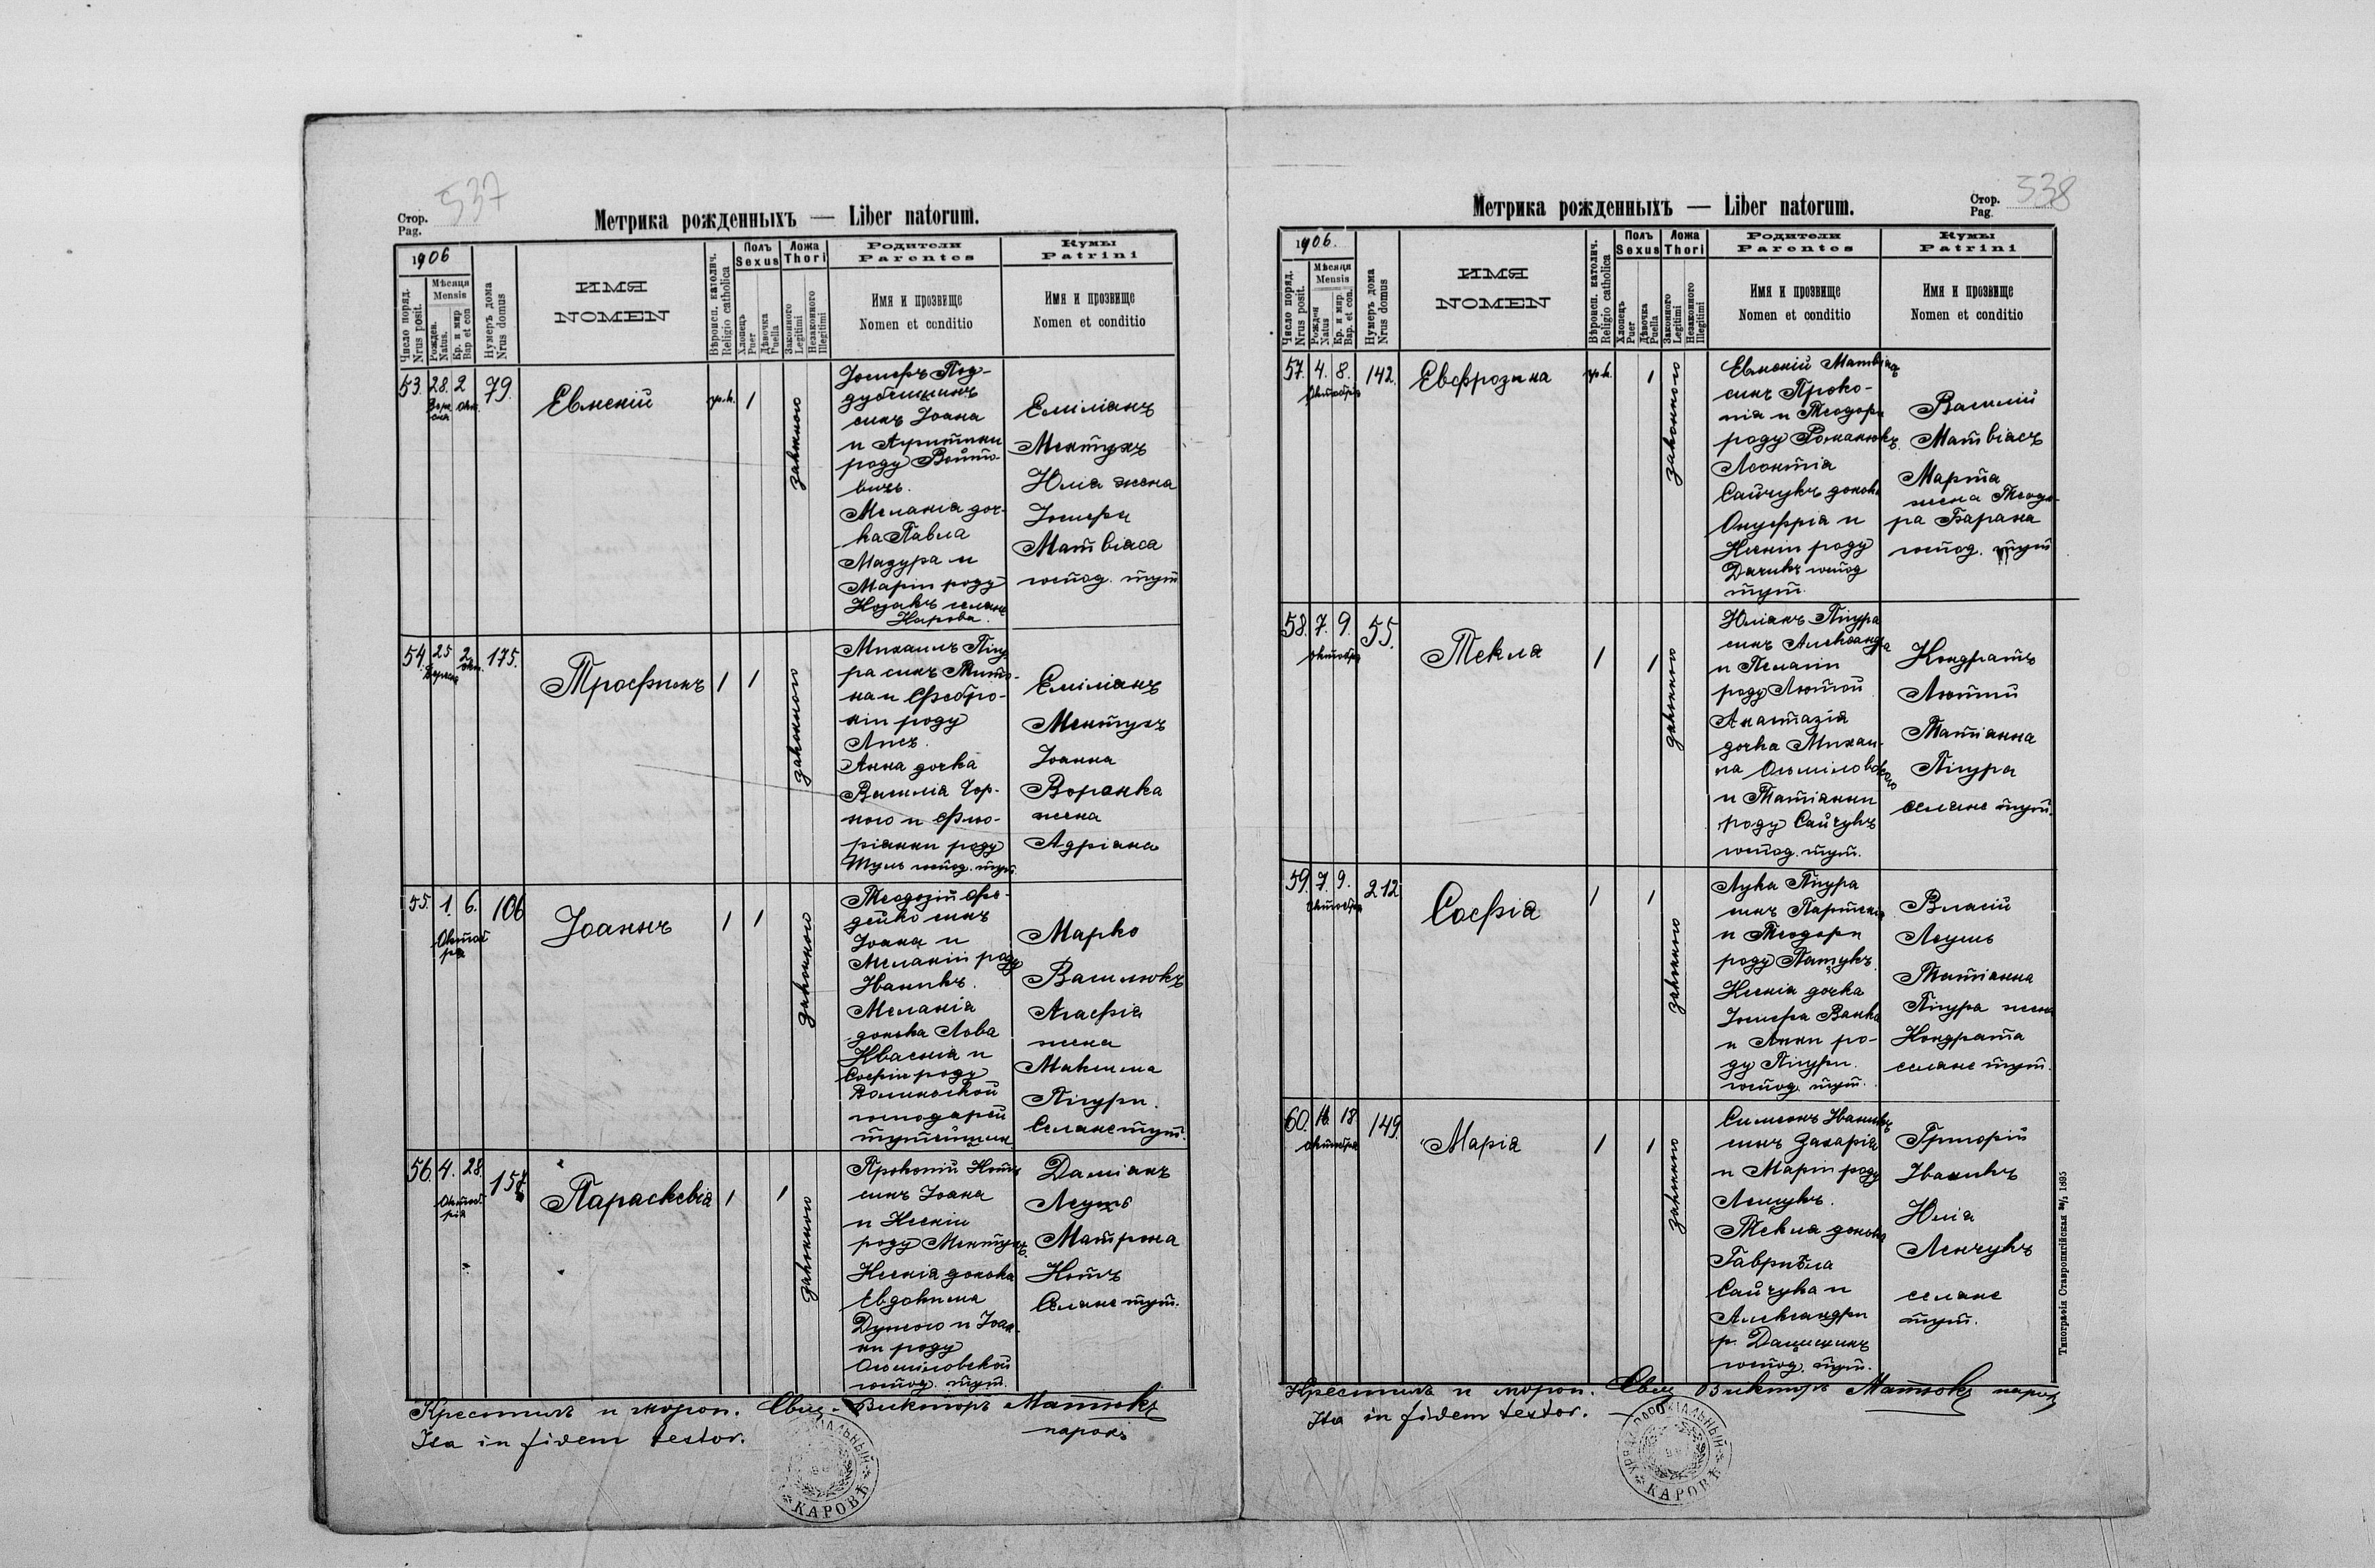 537
Стор.
Pag.
Метрика рожденныхъ — Liber natorum.
1906
Число поряд.
Nrus posit.
Мѣсяця
Mensis
Рожден.
Natus.
Кр. и мир
Bap et con
Нумеръ дома
Nrus domus
ИМЯ
NOMEN
Вѣроисп. католич.
Religio catholica
Полъ
Sexus
Хлопецъ
Puer
Дѣвочка
Puella
Ложа
Thori
Законного
Legitimi
Незаконного
Illegitimi
Родители
Parentes
Имя и прозвище
Nomen et conditio
Кумы
Patrini
Имя и прозвище
Nomen et conditio
53. 28. 2 79.
Евгеній
гр.к. 1
законного
Іосифъ Под-
сынъ Іоана
роду Войто-
вичъ.
Меланія доч-
ка Павла
Мазура и
Маріи роду
Козакъ селяне
Карова.
Емиліанъ
Юлія жена
Іосифа
Матвіаса
господ. тут.
54. 25 2 окт. 175.
Трофимъ 1 1
законного
Михаилъ Пігу-
ра сынъ Тимо-
на и Февро-
ніи роду
Лисъ.
Анна дочка
Василія Чор-
ного и Фло-
ріанни роду
господ. тут.
Емиліанъ
Іоанна
Воронка
жена
Адріана
55. 1. 6. 106
Октоб
ра
Іоаннъ 1 1
законного
Теодозій Фе-
дейко сынъ
Іоана и
Меланіи роду
Иваникъ.
Меланія
донька Лова
Софіи роду
господарей
тутейшихъ
Марко
Василюкъ
Агафія
жена
Максима
Пігури.
Селяне тут.
56. 4. 28. 157
Октоб
рія
Параскевія 1 1
законного
Прокопій
сынъ Іоана
и Ксеніи
роду
Ксенія донька
Евдокима
Дункого и Іоан-
ни роду
господ. тут.
Даміанъ
Матрона
Селяне тут.
Крестилъ и миропом. Свящ. Викторъ Матюкъ
парохъ
Ita in fidem testor.
КАРОВѢ
Стор.
Pag
538
Метрика рожденныхъ — Liber natorum.
1906.
Число поряд.
Nrus posit.
Мѣсяця
Mensis
Рожден
Natus
Кр. и мир.
Bap. et con.
Нумеръ дома
Nrus domus
ИМЯ
NOMEN
Вѣроисп. католич.
Religio catholica
Полъ
Sexus
Хлопецъ
Puer
Дѣвочка
Puella
Ложа
Thori
Законного
Legitimi
Незаконного
Illegitimi
Родители
Parentes
Имя и прозвище
Nomen et conditio
Кумы
Patrini
Имя и прозвище
Nomen et conditio
57. 4. 8. 142.
Октобрія
Евфрозина
гр.к. 1
законного
Евгеній Матвіасъ
сынъ Проко-
пія и Теодори
роду Романюкъ.
Леонтія
Сайчукъ донька
Онуфрія и
Ксеніи роду
господ
тут.
Василій
Матвіасъ
Марта
жена Теодо-
ра Барана
господ. тут
58. 7. 9. 55.
Октобра
Текля 1 1
законного
Юліанъ Пігура
сынъ Александра
и Пелагіи
роду Лютой
Анастазія
дочка Михаи-
ла Осьміловского
и Татіанни
роду Сайчукъ
господ. тут.
Кондратъ
Лютий
Татіанна
Пігура
селяне тут.
59. 7. 9. 212
Октобра
Софія 1 1
законного
Лука Пігура
и Теодори
Ксенія дочка
Іосифа Ванка
и Анни ро-
ду Пігури.
господ. тут.
Власій
Татіанна
Пігура жена
Кондрата
селяне тут.
60. 16. 18 149.
Октобра
Марія 1 1
законного
Симеонъ Иваникъ
сынъ Захарія
и Маріи роду
Текля донька
Гавриѣла
Сайчука и
Александри
господ. тут.
Григорій
Иваникъ
Юлія
Ленчукъ
селяне
тут.
Типографія Ставропигійская 1895
Крестилъ и миропом. Свящ Викторъ Матюкъ парох
Ita in fidem testor.
КАРОВѢ